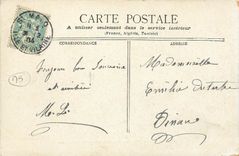 CARTE POSTALE
A utiliser seulement dans le service intérieur
(France, Algérie, Tunisie)
ST MALO
ILLE-ET-VILAINE
Toujours bon Souvenir
et amitiés
Mademoiselle
Emilie
Dinan